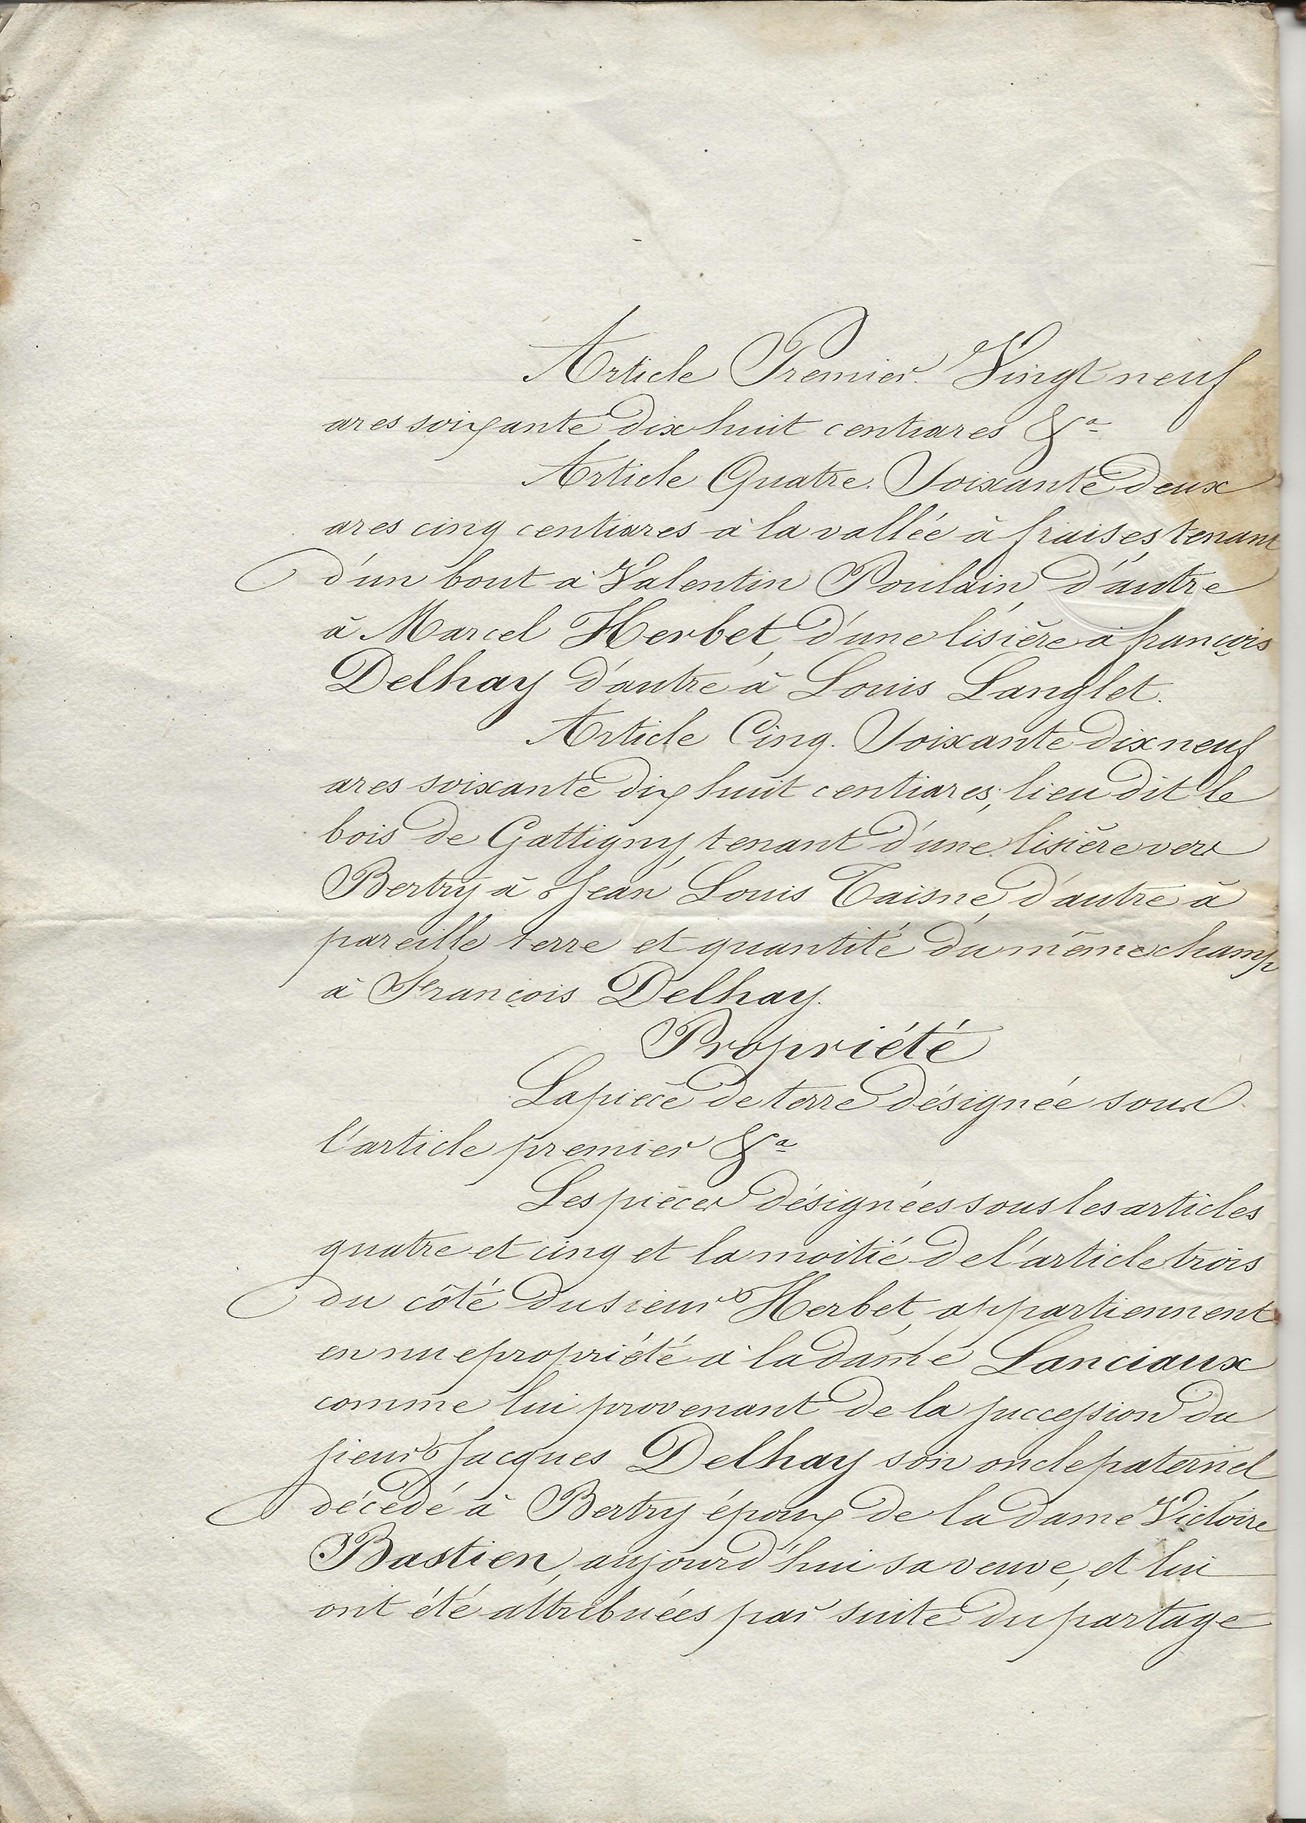 Article Premier. Vingt neuf
ares soixante dix huit centiares &a
Article Quatre. Soixante deux
ares cinq centiares à la vallée à fraises tenant
d'un bout à Valentin Poulain, d'autre
à Marcel Herbet, d'une lisière à françois
Delhay d'autre à Louis Langlet.
Article Cinq. Soixante dix neuf
ares soixante dix huit centiares, lieu dit le
bois de Gattigny, tenant d'une lisière vers
Bertry à Jean Louis Taisne, d'autre à
pareille terre et quantité du même champ
à François Delhay.
Propriété
La pièce de terre désignée sous
l'article premier &a
Les pièces désignées sous les articles
quatre et cinq et la moitié de l'article trois
du côté du sieur Herbet, appartiennent
en nue propriété à la dame Lanciaux
comme lui provenant de la succession du
sieur Jacques Delhay son oncle paternel
décédé à Bertry époux de la dame Victoire
Bastien, aujourd'hui sa veuve, et lui
ont été attribuées par suite du partage